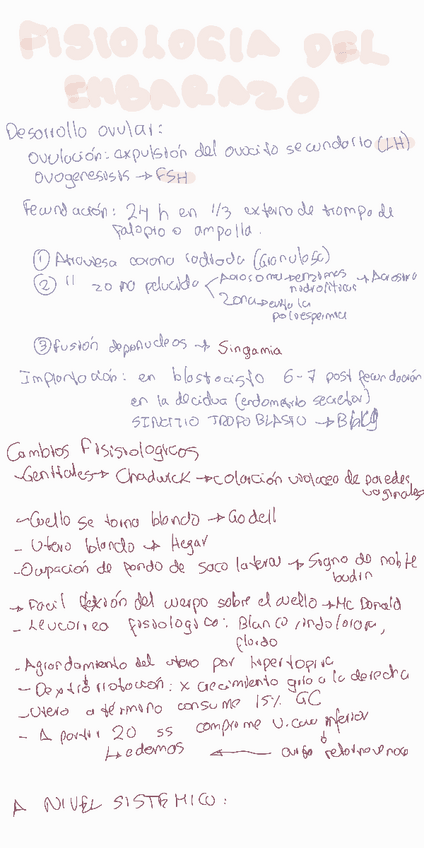 FISIOLOGIA DEL
EMBARAZO
Desarrollo ovular:
Ovulación: expulsión del ovocito secundario (LH)
Ovogenesis → FSH
Fecundación: 24 h en 1/3 externo de trompa de
falopio o ampolla.
① Atraviesa corona radiada (Granulosa)
② " zona pelucida < Acrosoma → enzimas hidroliticas → Acrosina
Zona → evita la
poliespermia
③ fusión de pronucleos → Singamia
Implantación: en blastocisto 6-7 post fecundación
en la decidua (endometrio secretor)
SINCITIO TROFOBLASTO → BhCG
Cambios Fisisiologicos
- Genitales → Chadwick → coloración violaceo de paredes
vaginales
- Cuello se torna blando → Godell
- Utero blando → Hegar
- Ocupación de fondo de saco lateral → Signo de noble
budin
→ Facil flexión del cuerpo sobre el cuello → Mc Donald
- Leucorrea fisiologica: Blanco, indolora,
fluido
- Agrandamiento del utero por hipertrofia
- Dextrorrotación: x crecimiento giro a la derecha
- Utero a término consume 15% GC
- A partir 20 ss comprome v. cava inferior
↳ edemas ←
A NIVEL SISTEMICO: